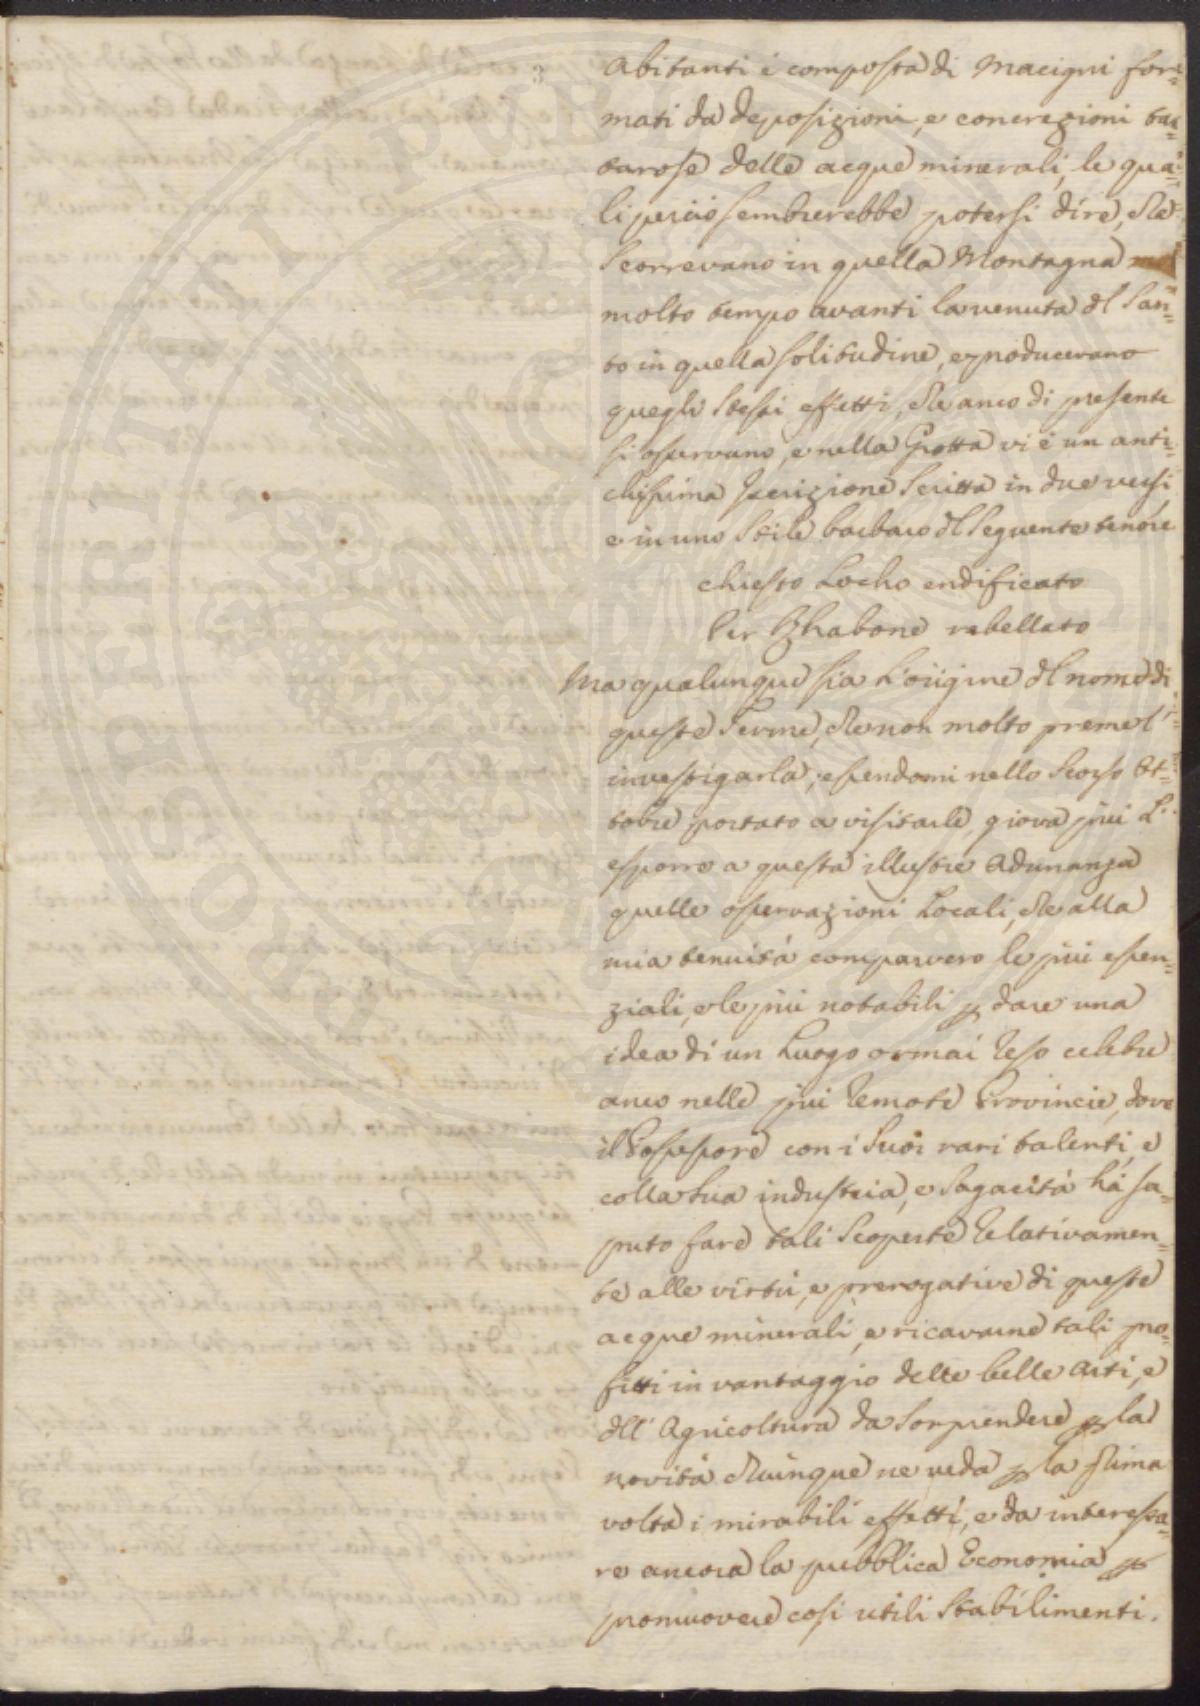 3
Abitanti è composta di Macigni for=
mati da deposizioni, e concrezioni tar=
tarose delle acque minerali, le qua=
li perciò sembrerebbe potersi dire, che
scorrevano in quella Montagna
molto tempo avanti la venuta dl San=
to in quella solitudine, e producevano
quegli stessi effetti, che anco di presente
si osservano, e nella Grotta vi è un anti=
chissima Iscrizione scritta in due versi
e in uno stile barbaro dl seguente tenore
chiesto Locho endificato
Per Ghabone rebellato
Ma qualunque sia l'origine dl nome di
queste Terme, che non molto preme l'
investigarla; essendomi nello scorso Ot=
tobre portato a visitarle, giova più l'
esporre a questa illustre Adunanza
quelle osservazioni Locali, che alla
mia tenuità comparvero le più essen=
ziali, e le più notabili p dare una
idea di un Luogo ormai reso celebre
anco nelle più remote Provincie, dove
il Possessore con i suoi rari talenti, e
colla sua industria, e sagacità há sa=
puto fare tali scoperte relativamen=
te alle virtù, e prerogative di queste
acque minerali, e ricavarne tali pro=
fitti in vantaggio delle belle Arti, e
dll' Agricoltura da sorprendere p la
novità chiunque ne veda p la prima
volta i mirabili effetti, e da interessa=
re ancora la pubblica Economia p
promuovere così utili stabilimenti.